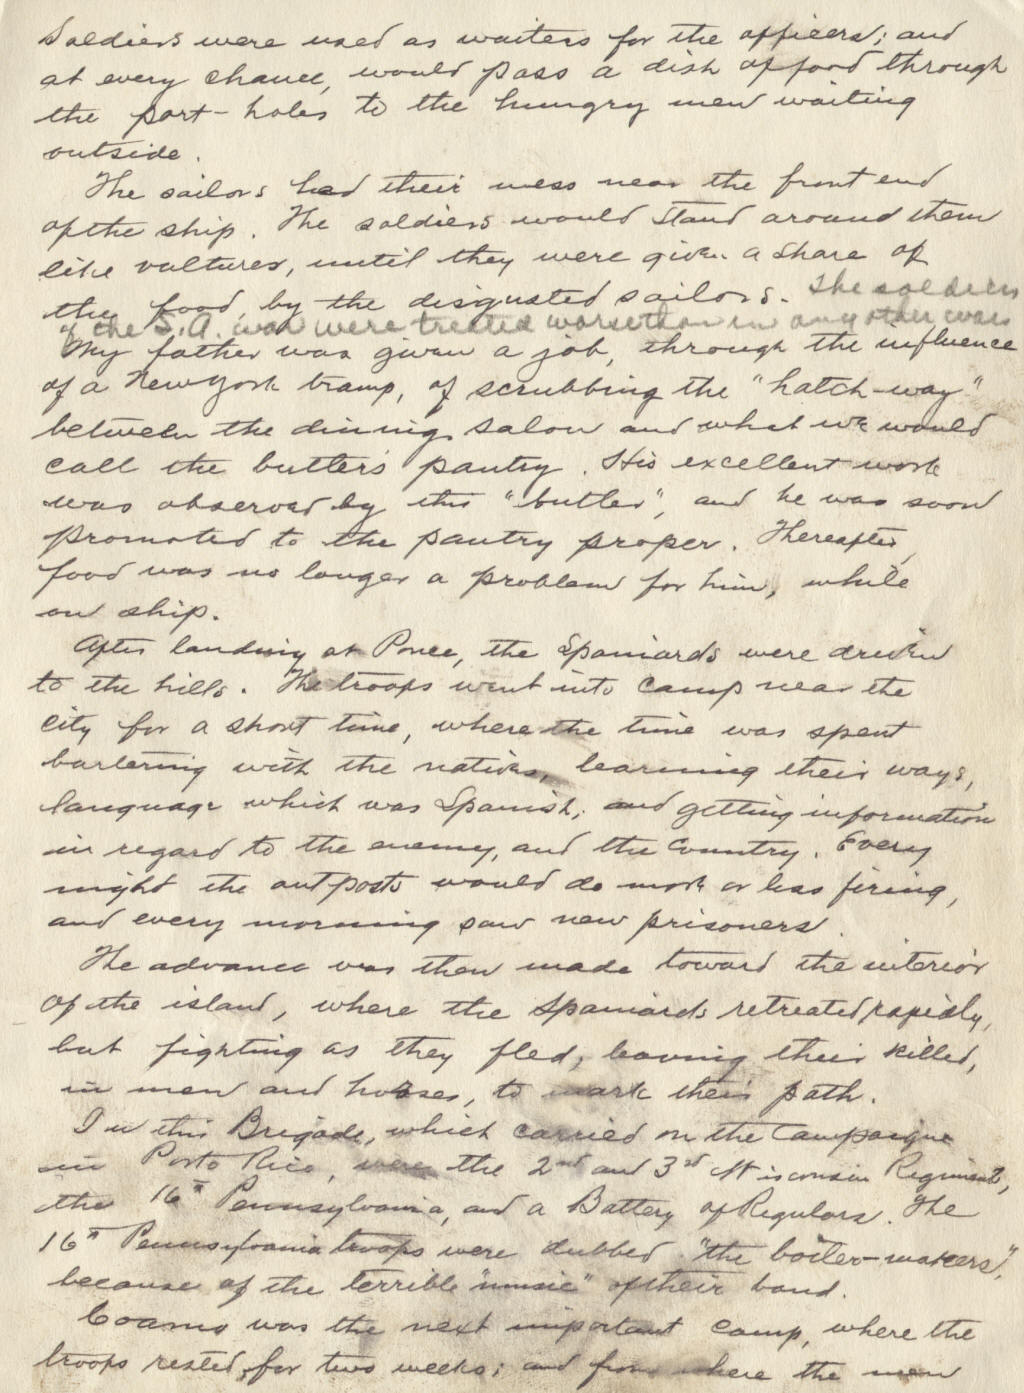 Soldiers were used as waiters for the officers; and
at every chance, would pass a dish of food through
the port-holes to the hungry men waiting
outside.
The sailors had their mess near the front end
of the ship. The soldiers would stand around them
like vultures, until they were given a share of
the food, by the disgusted sailors. The soldiers
of the S.A. war were treated worse than in any other war
My father was given a job, through the influence
of a New York tramp, of scrubbing the "hatch-way"
between the dining salon and what we would
call the butler's pantry. His excellent work
was observed by this "butler", and he was soon
promoted to the pantry proper. Thereafter,
food was no longer a problem for him, while
on ship.
After landing at Ponce, the Spaniards were driven
to the hills. The troops went into camp near the
city for a short time, where the time was spent
bartering with the natives, learning their ways,
language which was Spanish; and getting information
in regard to the enemy, and the Country. Every
night the outposts would do more or less firing,
and every morning saw new prisoners.
The advance was then made toward the interior
of the island, where the Spaniards retreated rapidly,
but fighting as they fled; leaving their killed,
in men and horses, to mark their path.
In this Brigade, which carried on the Campaigne
in Porto Rico, were the 2nd and 3rd Wisconsin Regiments,
the 16th Pennsylvania, and a Battery of Regulars. The
16th Pennsylvania troops were dubbed "the boiler-makers",
because of the terrible "music" of their band.
Coamo was the next important camp, where the
troops rested for two weeks; and from where the men